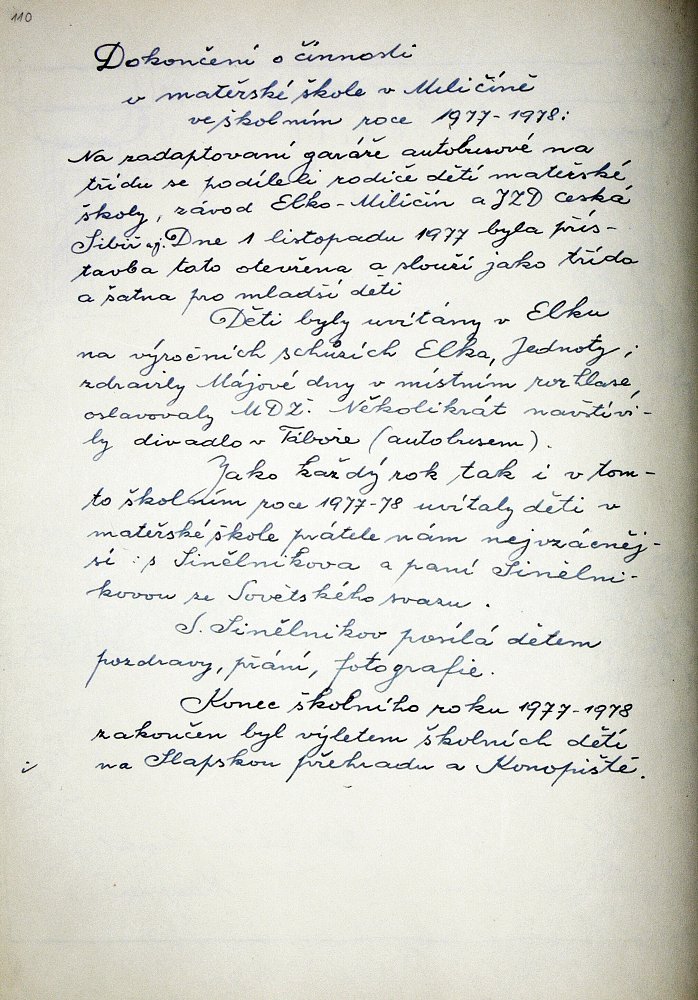 110
Dokončení o činnosti
v mateřské škole v Miličíně
ve školním roce 1977-1978:
Na zadaptovaní garáže autobusové na
třídu se podíleli rodiče dětí mateřské
školy, závod Elko-Miličín a JZD česká
Sibiř aj. Dne 1 listopadu 1977 byla přís-
tavba tato otevřena a slouží jako třída
a šatna pro mladší děti
Děti byly uvítány v Elku
na výročních schůzích Elka, Jednoty;
zdravily Májové dny v místním rozhlase,
oslavovaly MDŽ. Několikrát navštívi-
ly divadlo v Táboře (autobusem).
Jako každý rok tak i v tom-
to školním roce 1977-78 uvítaly děti v
mateřské škole přátele nám nejvzácněj-
ší: s Sinělnikova a paní Sinělni-
kovou ze Sovětského svazu.
S. Sinělnikov posílá dětem
pozdravy, přání, fotografie.
Konec školního roku 1977-1978
zakončen byl výletem školních dětí
na Slapskou přehradu a Konopiště.